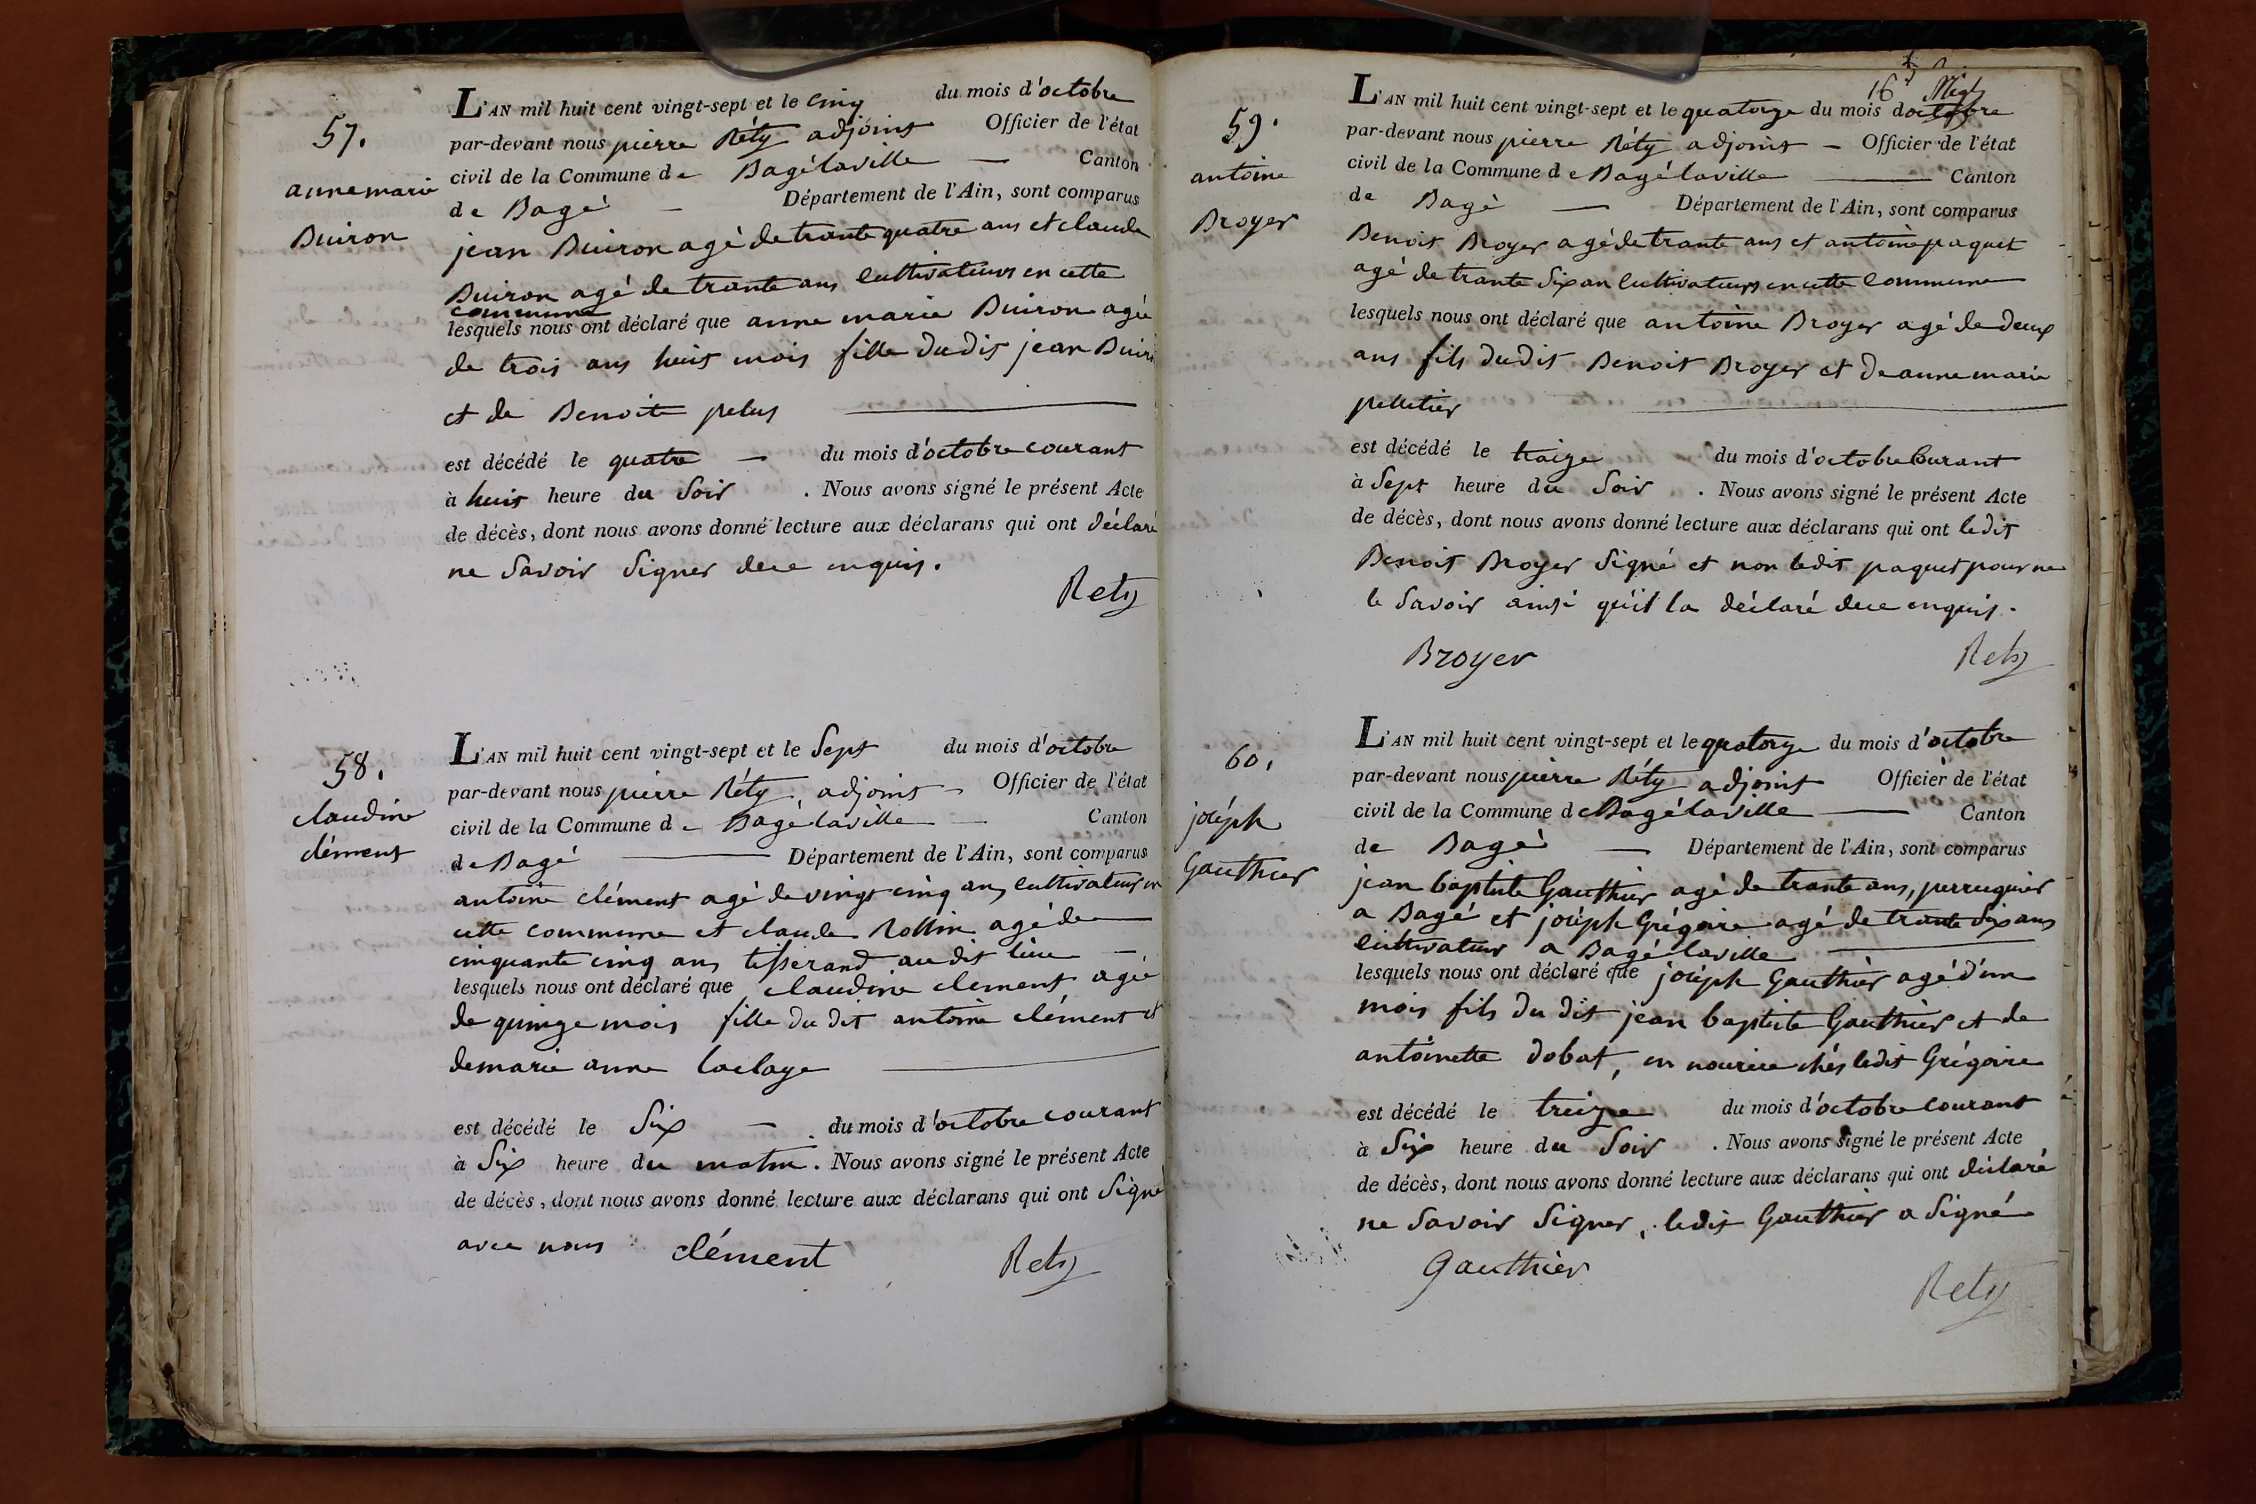 57.
anne marie
Buiron
L'AN mil huit cent vingt-sept et le cinq du mois d'octobre
par-devant nous pierre Réty adjoint Officier de l'état
civil de la Commune de Bagélaville — Canton
de Bagé — Département de l'Ain, sont comparus
jean Buiron agé de trante quatre ans et claude
Buiron agé de trante ans cultivateurs en cette
commune
lesquels nous ont déclaré que anne marie Buiron agée
de trois ans huit mois fille dudit jean Buiron
et de Benoite pelus
est décédé le quatre — du mois d'octobre courant
à huit heure du Soir . Nous avons signé le présent Acte
de décès, dont nous avons donné lecture aux déclarans qui ont déclaré
ne Savoir Signer de ce enquis.
Rety
58.
claudine
clément
L'AN mil huit cent vingt-sept et le Sept du mois d'octobre
par-devant nous pierre Réty, adjoint — Officier de l'état
civil de la Commune de Bagélaville — Canton
de Bagé — Département de l'Ain, sont comparus
antoine clément agé de vingt cinq ans cultivateur en
cette commune et claude Rollin agé de
cinquante cinq ans tisserand audit lieu —
lesquels nous ont déclaré que claudine clement agée
de quinze mois fille du dit antoine clément et
de marie anne
est décédé le Six — du mois d'octobre courant
à Six heure du matin. Nous avons signé le présent Acte
de décès, dont nous avons donné lecture aux déclarans qui ont Signé
avec nous clément Rety
16
59.
antoine
Broyer
L'AN mil huit cent vingt-sept et le quatorze du mois d'octobre
par-devant nous pierre Réty adjoint — Officier de l'état
civil de la Commune de Bagélaville — Canton
de Bagé — Département de l'Ain, sont comparus
Benoit Broyer agé de trante ans et antoine paquet
agé de trante Six an cultivateurs en cette commune
lesquels nous ont déclaré que antoine Broyer agé de deux
ans fils dudit Benoit Broyer et de anne marie
pelletier
est décédé le traize du mois d'octobre Courant
à Sept heure du Soir . Nous avons signé le présent Acte
de décès, dont nous avons donné lecture aux déclarans qui ont ledit
Benoit Broyer Signé et non ledit paquet pour ne
le Savoir ainsi qu'il la déclaré de ce enquis.
Broyer Rety
60.
joséph
Gauthier
L'AN mil huit cent vingt-sept et le quatorze du mois d'octobre
par-devant nous pierre Réty adjoint Officier de l'état
civil de la Commune de Bagélaville — Canton
de Bagé — Département de l'Ain, sont comparus
jean baptiste Gauthier agé de trante ans, perruquier
a Bagé et joséph Grégoire agé de trante Six ans
cultivateur a Bagélaville
lesquels nous ont déclaré que joséph Gauthier agé d'un
mois fils du dit jean baptiste Gauthier et de
antoinette dobat, en nourice chés ledit Grégoire
est décédé le treize du mois d'octobre courant
à Six heure du Soir . Nous avons signé le présent Acte
de décès, dont nous avons donné lecture aux déclarans qui ont déclaré
ne Savoir Signer, ledit Gauthier a Signé
Gauthier
Rety